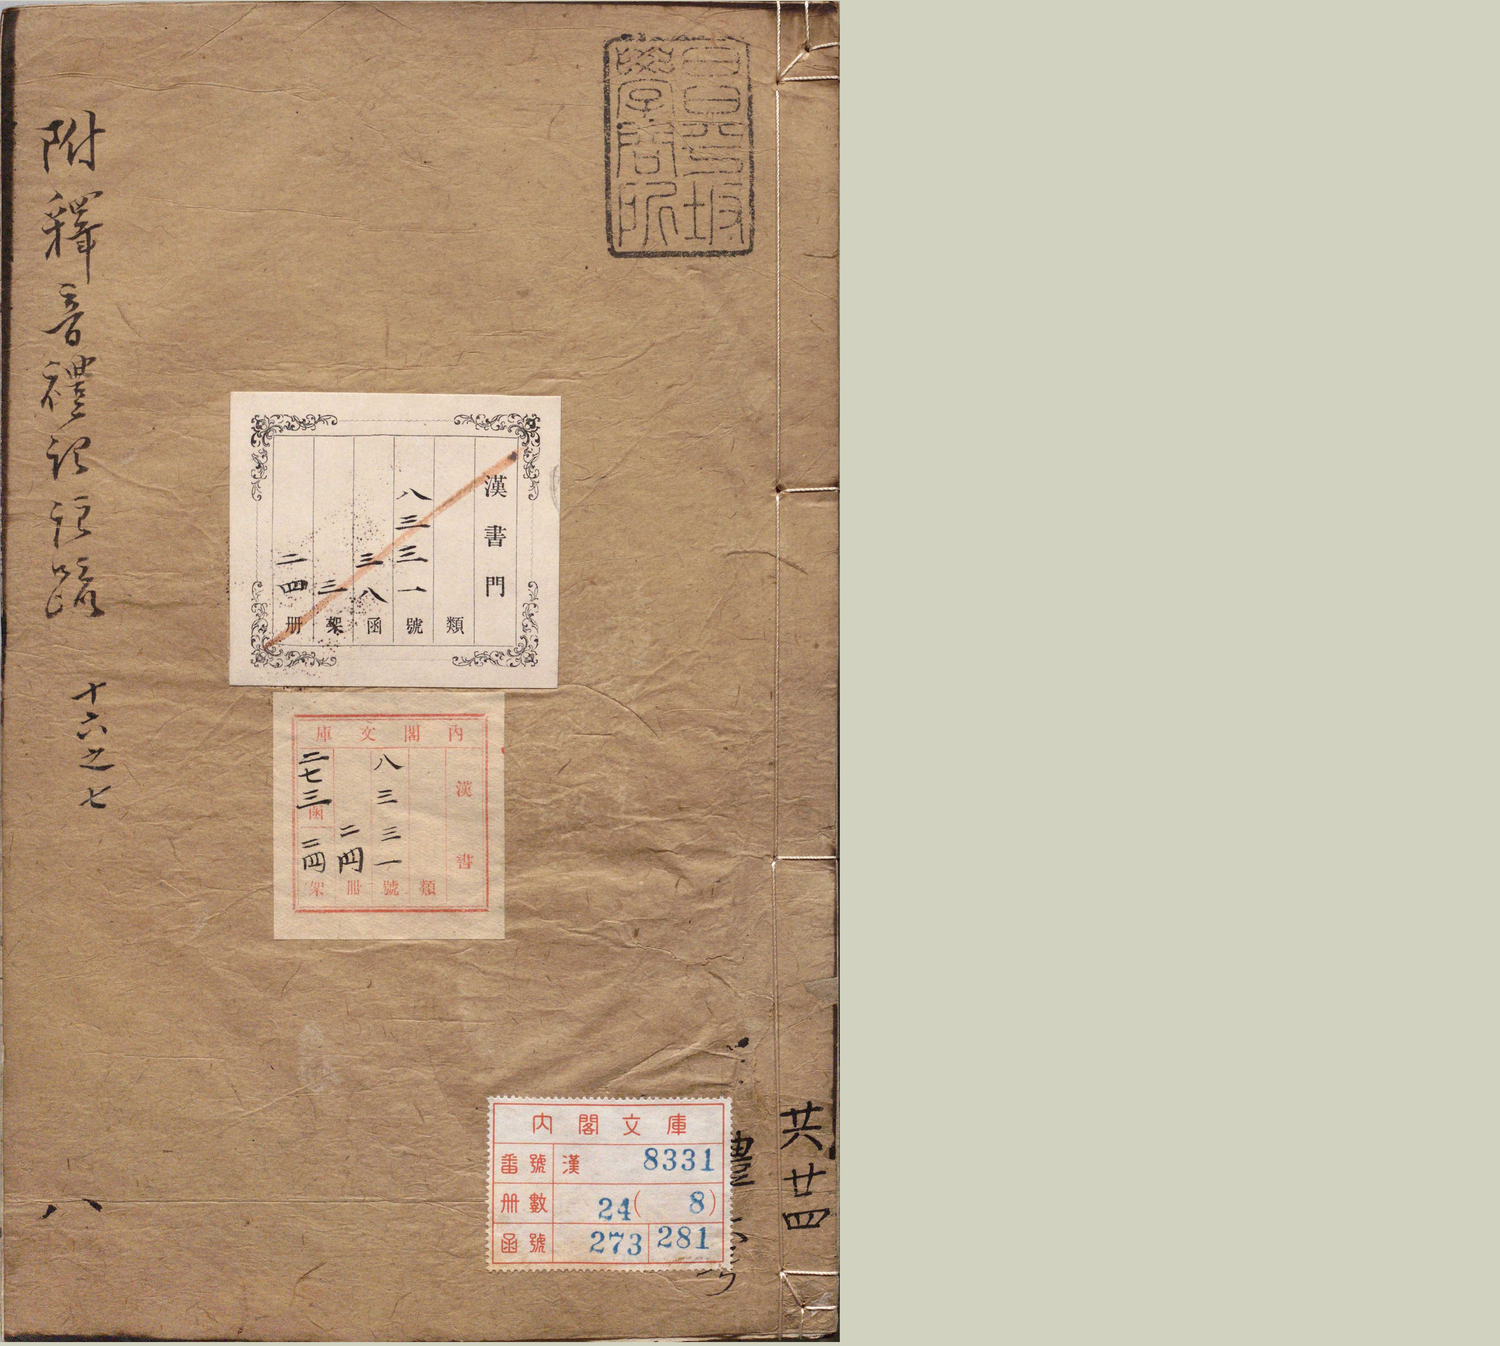 昌平坂
學問所
附釋音禮記註疏
十六之七
八
漢書門
類
八三三一號
三八函
三架
二四册
內閣文庫
漢書
類
八三三一號
二四冊
二七三函
二四架
內閣文庫
番號 漢 8331
册數 24(8)
函號 273 281
共廿四